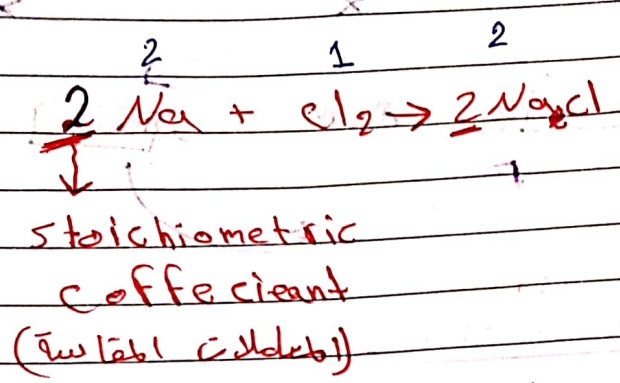 2 1 2
2 Na + Cl₂ → 2 NaCl
stoichiometric
coffecieant
(المعاملات المقاسة)